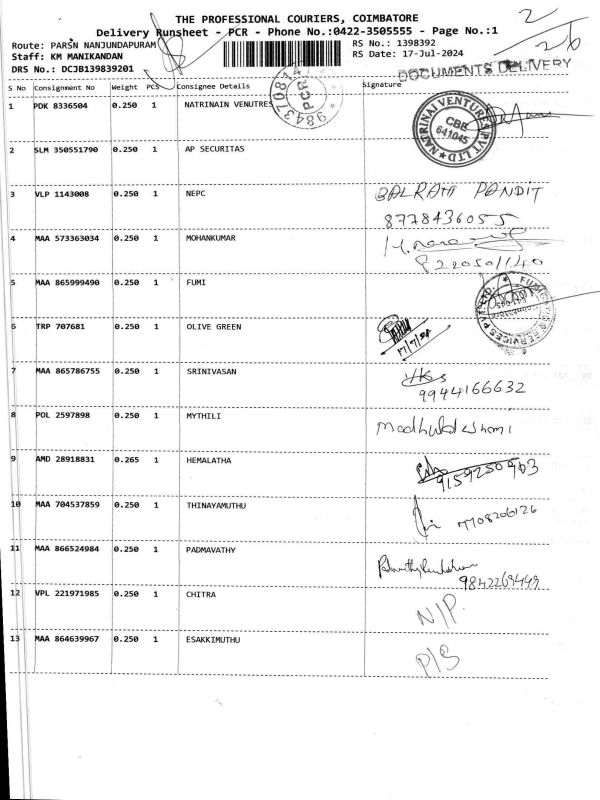 THE PROFESSIONAL COURIERS, COIMBATORE
Delivery Runsheet - PCR - Phone No.:0422-3505555 - Page No.:1
2
26
Route: PARSN NANJUNDAPURAM
RS No.: 1398392
Staff: KM MANIKANDAN
RS Date: 17-Jul-2024
DRS No.: DCJB139839201
DOCUMENTS DELIVERY
PCR
S No Consignment No Weight PCS Consignee Details Signature
1 PDK 8336504 0.250 1 NATRINAIN VENUTRES
NATRINAI VENTURES PVT LTD
CBE
641045
2 SLM 350551790 0.250 1 AP SECURITAS
3 VLP 1143008 0.250 1 NEPC BALRAM PANDIT
8778436055
4 MAA 573363034 0.250 1 MOHANKUMAR
5 MAA 865999490 0.250 1 FUMI
6 TRP 707681 0.250 1 OLIVE GREEN
17/7/24
7 MAA 865786755 0.250 1 SRINIVASAN
9944166632
8 POL 2597898 0.250 1 MYTHILI
9 AMD 28918831 0.265 1 HEMALATHA
9159250903
10 MAA 704537859 0.250 1 THINAYAMUTHU
7708206126
11 MAA 866524984 0.250 1 PADMAVATHY
9842269449
12 VPL 221971985 0.250 1 CHITRA N/P.
13 MAA 864639967 0.250 1 ESAKKIMUTHU P/S